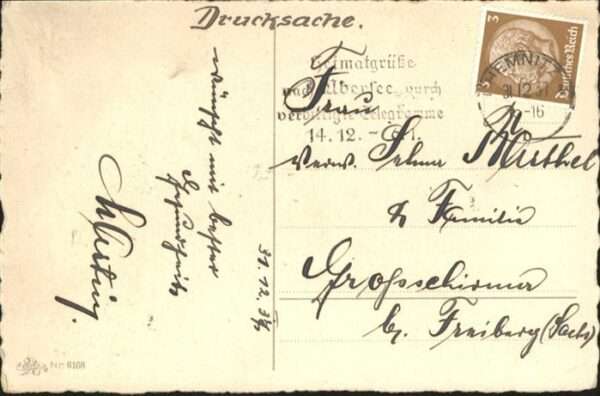 Drucksache.
wünscht mit bester
Gesundheit
31.12.
Heimatgrüße
nach Übersee durch
verbilligte Telegramme
14.12. - 6.1.
CHEMNITZ
31.12.
-16
3
3
Deutsches Reich
Frau
verw. Selma
& Familie
Grossschirma
b. Freiberg (Sachs)
Nr. 6168